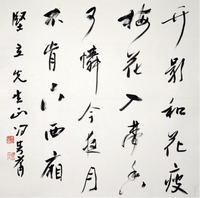 竹影和詩瘦
梅花入夢香
可憐今夜月
不肯下西廂
堅立先生正